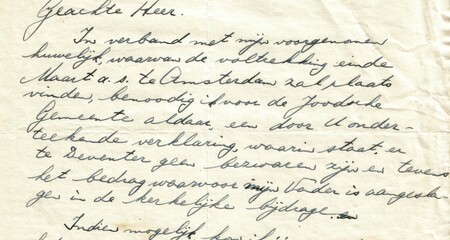 Geachte Heer.
In verband met mijn voorgenomen
huwelijk, waarvan de voltrekking einde
Maart a.s. te Amsterdam zal plaats
vinden, benoodig ik voor de Joodsche
Gemeente aldaar, een door U onder-
teekende verklaring, waarin staat, er
te Deventer geen bezwaren zijn en tevens
het bedrag waarvoor mijn Vader is aangesla-
gen in de kerkelijke bijdrage.
Indien mogelijk